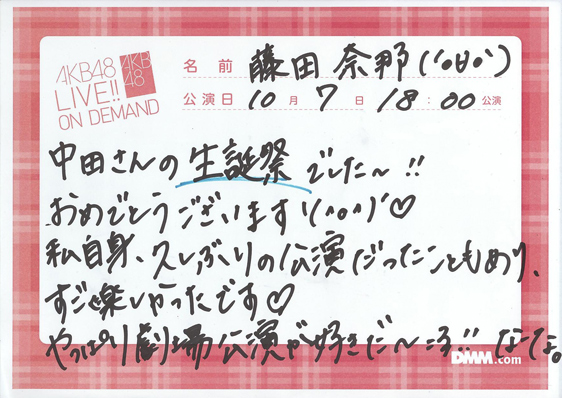 AKB48
LIVE!!
ON DEMAND
AKB
48
名前 藤田奈那('◦ㅂ◦')
公演日 10月7日 18:00公演
中田さんの生誕祭でした〜!!
おめでとうございます\(^o^)/♡
私自身、久しぶりの公演だったこともあり、
すごく楽しかったです♡
やっぱり劇場公演が好きだ〜
なーな。
DMM.com